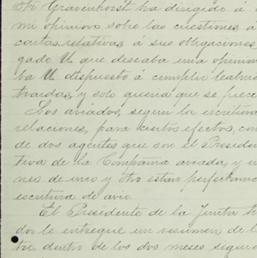 Sr. Gravenhorst ha dirigido á
mi opinion sobre las cuestiones á
cartas relativas á sus obligaciones
gado U. que deseaba una
ba U. dispuesto á cumplir
traidas, y solo queria que se
Los aviados, segun la escritura
relaciones, para ciertos efectos, con
de dos agentes que son el Presiden
tiva de la Compañia aviada, y en
nes de uno y otro estan perfectamen
escritura de avio.
El Presidente de la Junta
do le entregue un resumen de
tro dentro de los dos meses